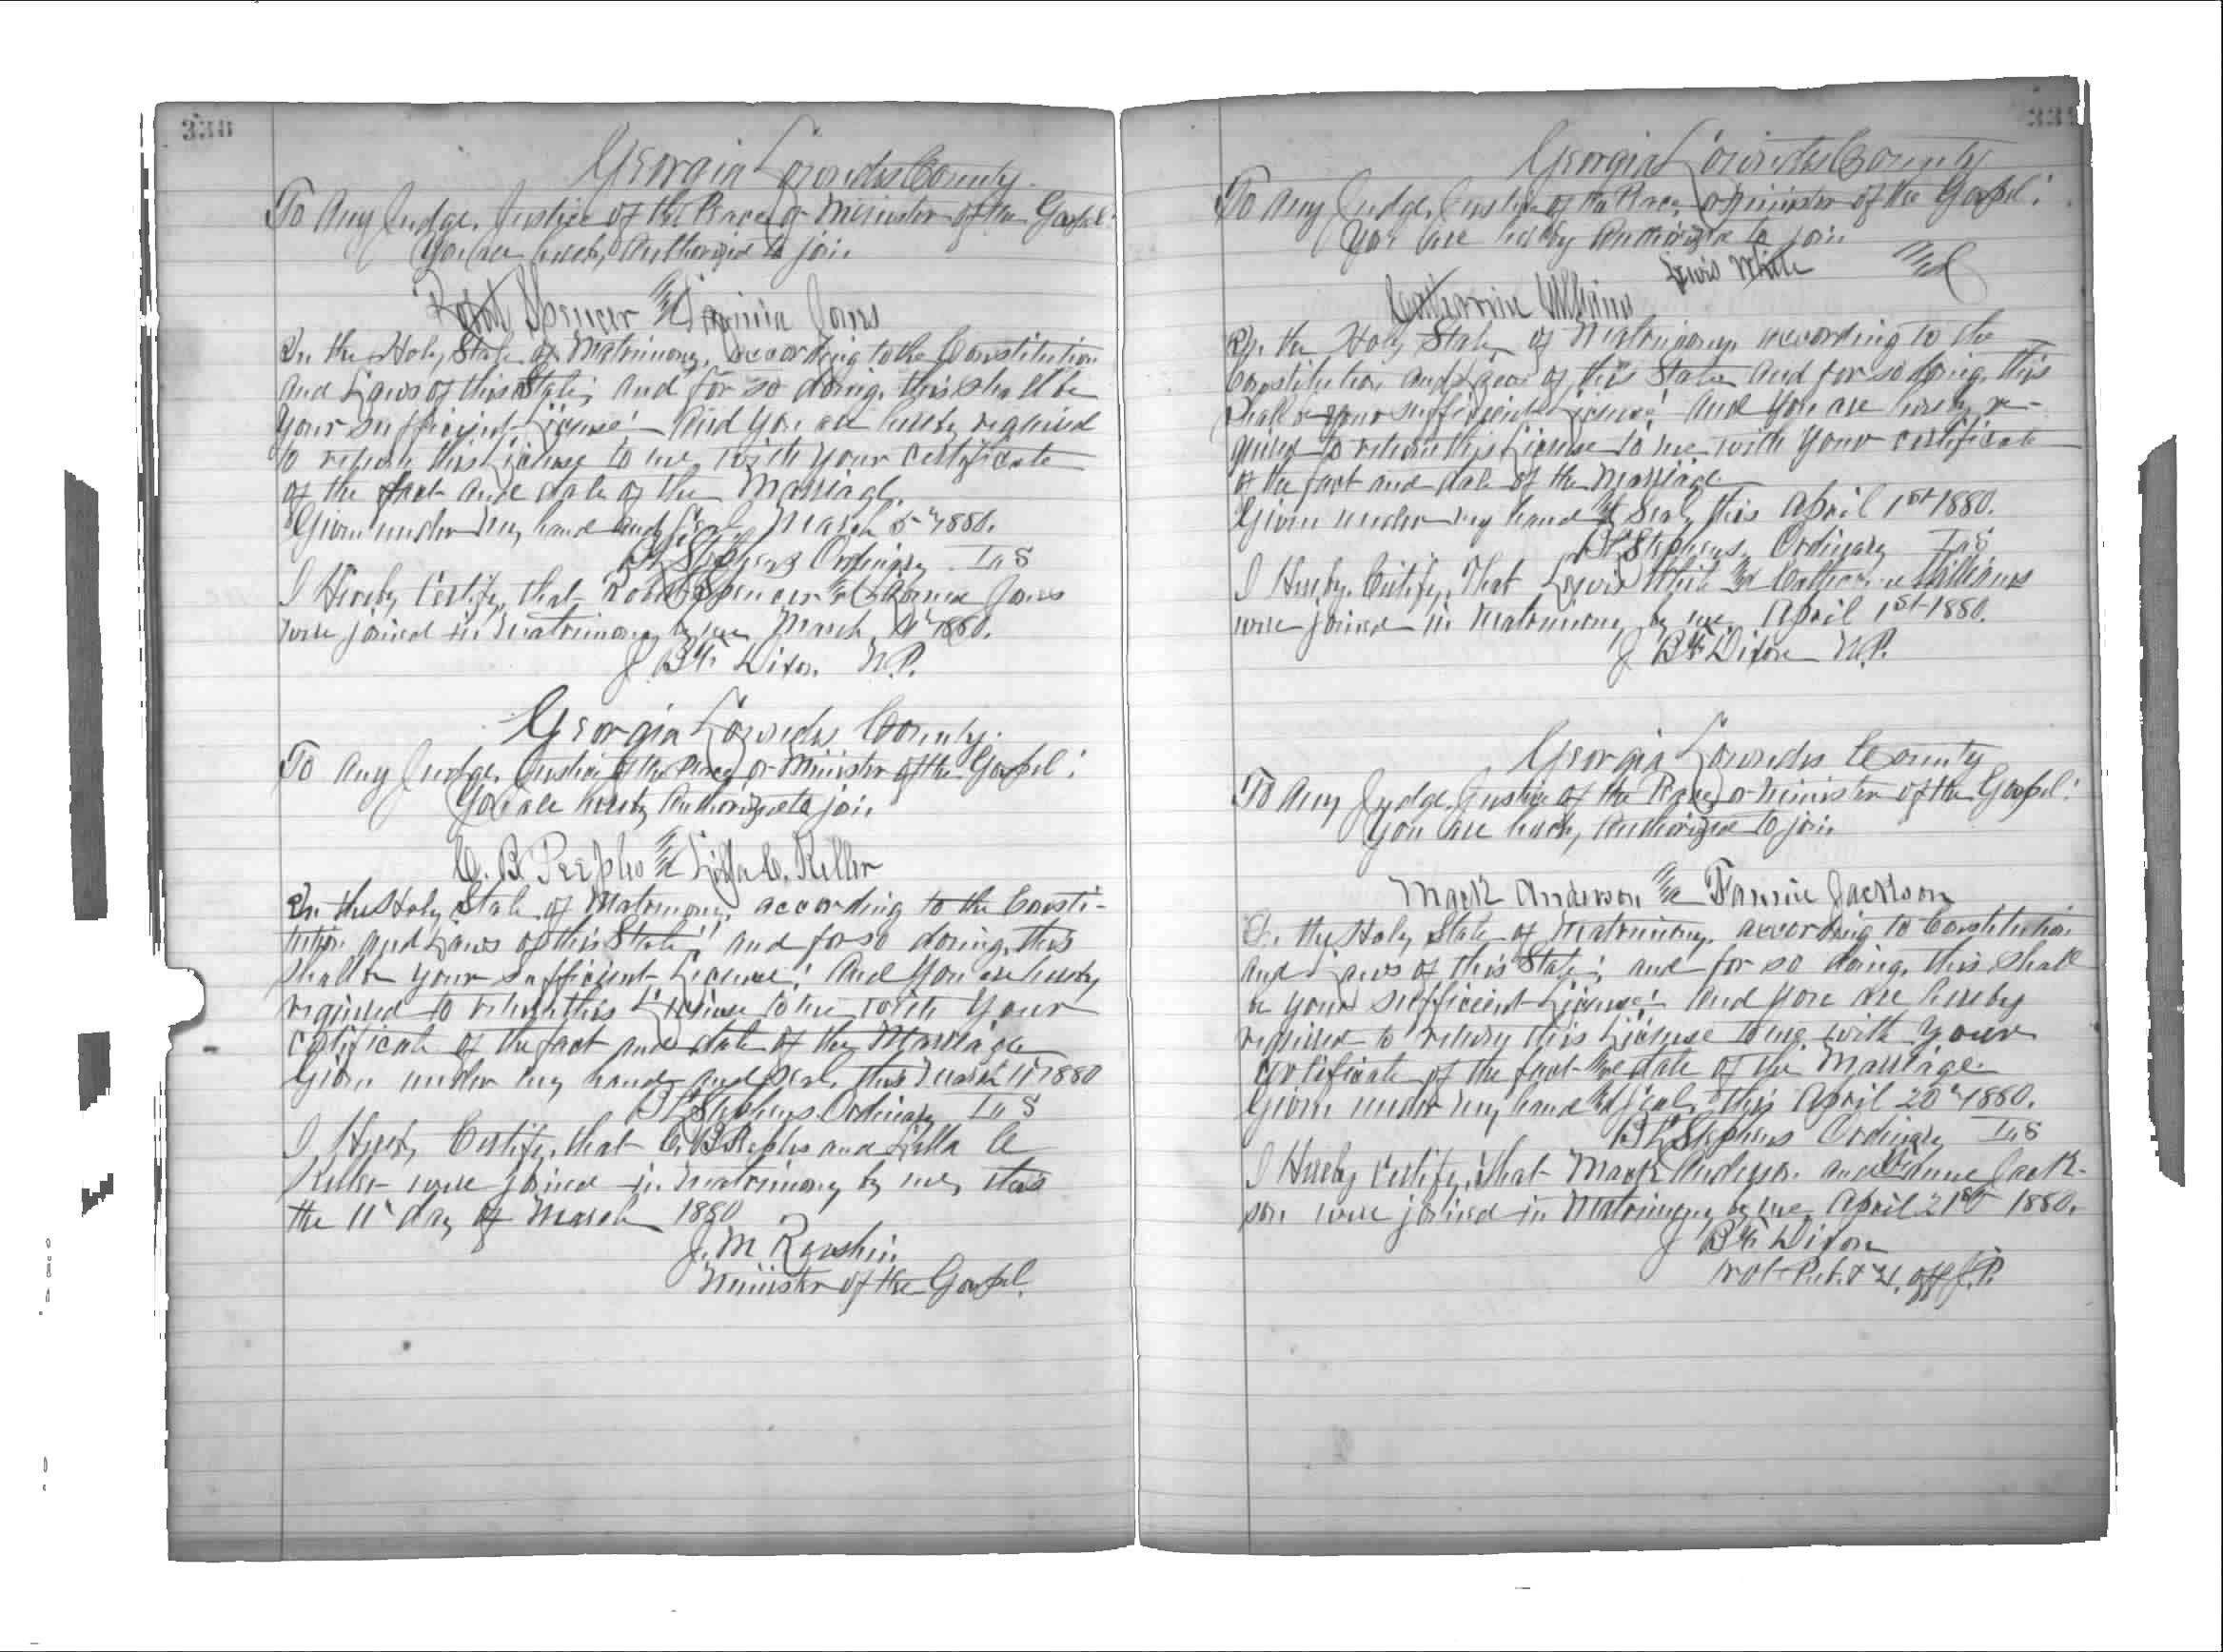 330
Georgia Lowndes County.
To Any Judge, Justice of the Peace or Minister of the Gospel:
You are hereby Authorized to join
Robert Spencer and Jones
In the Holy State of Matrimony, according to the Constitution
and Laws of this State; and for so doing, this shall be
your sufficient License! And you are hereby required
to return this License to me with your certificate
of the fact and date of the Marriage.
Given under my hand and Seal, March 5" 1880.
Stephens Ordinary
I Hereby Certify, that Robert Spencer and Jones
were joined in Matrimony by me, March 1880.
J B Dixon N.P.
Georgia Lowndes County.
To Any Judge, Justice of the Peace or Minister of the Gospel:
You are hereby Authorized to join
C. B. Peeples and Lilla C. Keller
In the Holy State of Matrimony, according to the Consti-
tution and Laws of this State; and for so doing, this
shall be your sufficient License! And You are hereby
required to return this License to me with Your
certificate of the fact and date of the Marriage
Given under my hand and seal, this March 11" 1880
Stephens Ordinary
I, Hereby Certify, that C. B Peeples and Lilla C
Keller were joined in Matrimony by me, this
the 11" day of March 1880
J. M
Minister of the Gospel.
Georgia Lowndes County
To Any Judge, Justice of the Peace, or Minister of the Gospel:
You are hereby Authorized to join
Lewis White and
Catharine Williams
In the Holy State of Matrimony, according to the
Constitution and Laws of this State and for so doing, this
shall be your sufficient License! And You are hereby re-
quired to return this License to me with Your certificate
of the fact and date of the Marriage
Given under my hand & Seal, this April 1st 1880.
Stephens, Ordinary
I Hereby Certify, That Lewis White and Catharine Williams
were joined in Matrimony by me, April 1st 1880.
J B Dixon N.P.
Georgia Lowndes County
To Any Judge, Justice of the Peace, or Minister of the Gospel:
You are hereby Authorized to join
Mack Anderson and Fannie Jackson
In the Holy State of Matrimony, according to Constitution
and Laws of this State; and for so doing, this shall
be your sufficient License! And you are hereby
required to return this License to me with your
certificate of the fact and date of the Marriage
Given under my hand and Seal, this April 20" 1880.
Stephens Ordinary
I Hereby Certify, that Mack Anderson and Fannie Jack-
son were joined in Matrimony by me, April 21st 1880.
J B Dixon
Not Pub. & Ex off J.P.